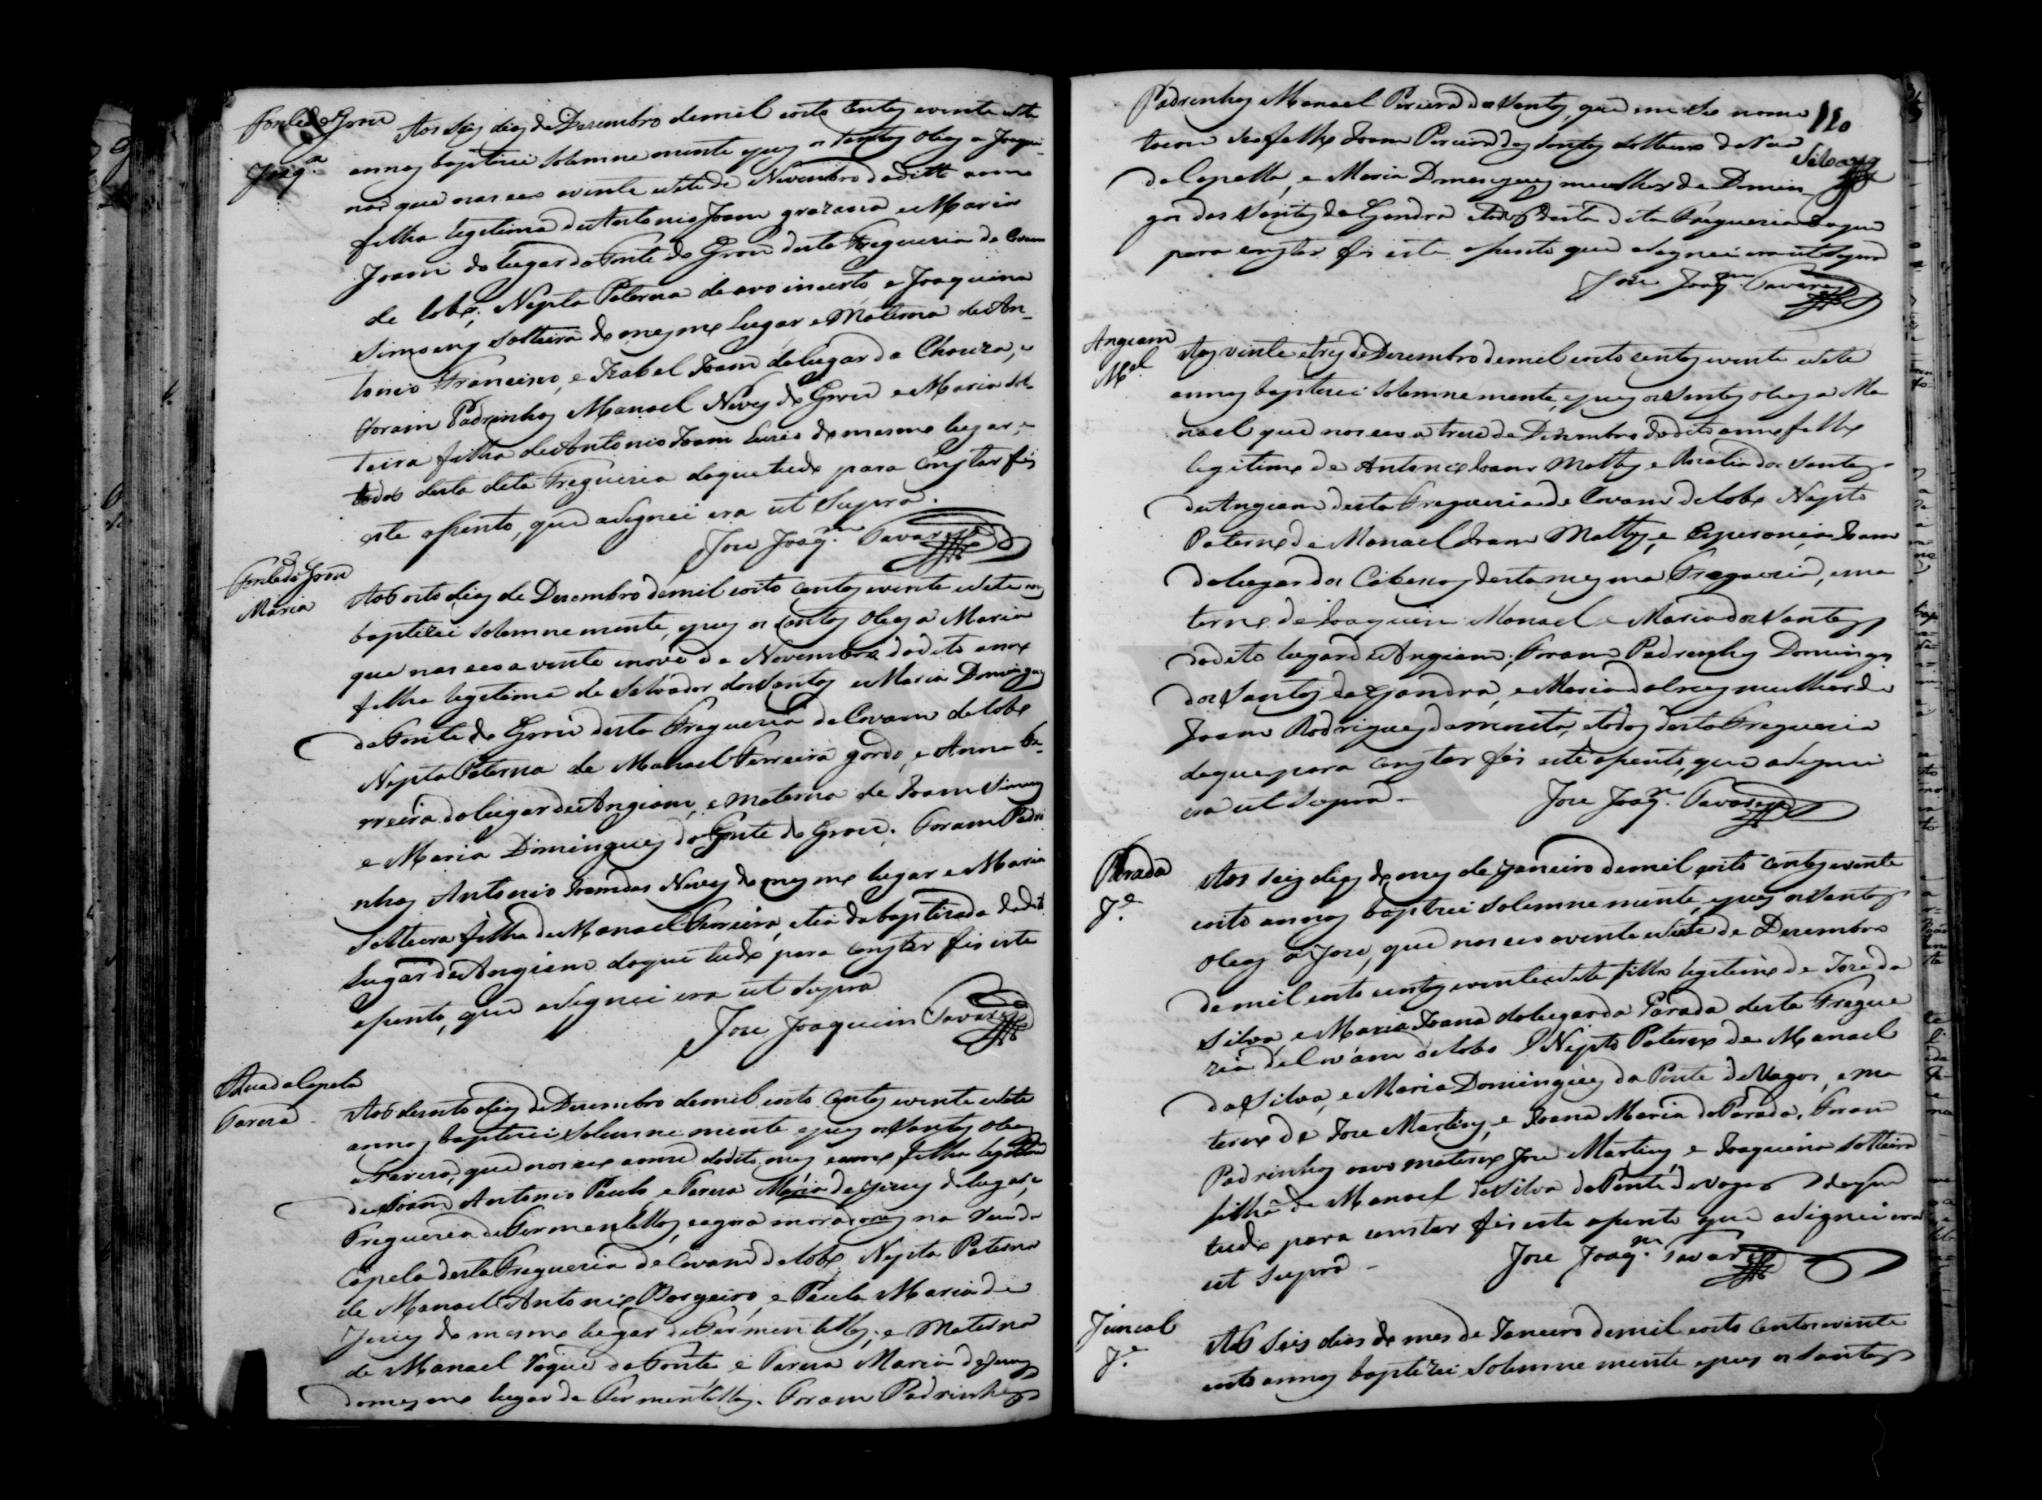 Fonte do Grou
Joaq.a
Aos seis dias de Dezembro de mil oito centos e vinte e sete
annos baptizei solemne mente e puz os Santos Oleos a Joaqui-
na que nasceo a vinte e sete de Novembro do ditto anno
filha legitima de Antonio Joam e Maria
Joam do lugar da Fonte do Grou desta Freguezia de Covam
de Lobo, Nepta Paterna de avo incerto e Joaquina
Simoens solteira do mesmo lugar e Materna de An-
tonio Francisco, e Izabel Joam do lugar da Chouza, e
Foram Padrinhos Manoel Neves do Grou e Maria sol-
teira filha de Antonio Joam do mesmo lugar, e
todos desta dita Freguezia do que tudo para constar fis
este asento, que asignei era ut Supra.
Joze Joaq.m Tavares
Fonte do Grou
Maria
Aos oito dias de Dezembro de mil oito centos e vinte e sete
baptizei solemne mente, e puz os Santos Oleos a Maria
que nasceo a vinte e nove de Novembro do dito anno
filha legitima de Salvador dos Santos e Maria Domingues
da Fonte do Grou desta Freguezia de Covam de Lobo
Nepta Paterna de Manoel Ferreira gordo, e Anna Fe-
rreira do lugar de Angiam, e Materna de Joam Simoens
e Maria Domingues da Fonte do Grou. Foram Padri
nhos Antonio Joam das Neves do mesmo lugar e Maria
Solteira filha de Manoel Ferreira, e tia da baptizada do dito
Lugar de Angiam do que tudo para constar fis este
asento, que asignei era ut Supra
Joze Joaquim Tavares
Rua da Capela
Tareza
Aos dezoito dias de Dezembro de mil oito centos e vinte e sete
annos baptizei solemne mente e puz os Santos Oleos
a Tareza, que nasceo a onze do dito mes e anno filha legitima
de Joam Antonio Paulo e Tareza Maria de Jezus do lugar, e
Freguezia de Fermentellos, e agora moradores na Rua da
Capela desta Freguezia de Covam de Lobo, Nepta Paterna
de Manoel Antonio, e Paula Maria de
Jezus do mesmo lugar de Fermentellos, e Materna
de Manoel Roque da Fonte e Tareza Maria de Jezus
do mesmo lugar de Fermentellos. Foram Padrinhos
110
Padrinhos Manoel Pereira dos Santos, que em seo nome
tocou seo filho Joam Pereira dos Santos solteiro da Rua
da Capella, e Maria Domingues mulher de Domin-
gos dos Santos da Gandra todos desta dita Freguezia do que
para constar fis este asento que asignei era ut Supra
Joze Joaq.m Tavares
Angiam
M.el
Aos vinte e tres de Dezembro de mil oito centos e vinte e sete
annos baptizei solemne mente, e puz os Santos oleos a Ma
noel que nasceo a treze de Dezembro do dito anno filho
legitimo de Antonio Joam Mattos e Rozalia dos Santos
de Angiam desta Freguezia de Covam de Lobo Nepto
Paterno de Manoel Joam Mattos, e Joam
do lugar dos Cabesos desta mesma Freguezia, e ma
terno de Joaquim Manoel e Maria dos Santos
do dito lugar de Angiam, Foram Padrinhos Domingos
dos Santos da Gandra, e Maria mulher de
Joam Rodrigues e todos desta Freguezia
do que para constar fis este asento, que asignei
era ut Supra.
Joze Joaq.m Tavares
Parada
J.e
Aos seis dias do mes de Janeiro de mil oito centos e vinte
oito annos baptizei solemne mente, e puz os Santos
Oleos a Joze, que nasceo a vinte e sete de Dezembro
de mil oito centos e vinte e sete filho legitimo de Joze da
Silva, e Maria Joana do lugar da Parada desta Fregue
zia de Covam de Lobo Nepto Paterno de Manoel
da Silva, e Maria Domingues da Ponte de Vagos, e ma
terno de Joze Martins, e Joana Maria da Parada. Foram
Padrinhos o avo materno Joze Martins e Joaquina solteira
filha de Manoel da Silva da Ponte de Vagos do que
tudo para constar fis este asento que asignei era
ut Supra.
Joze Joaq.m Tavares
Juncal
J.e
Aos seis dias do mes de Janeiro de mil oito centos e vinte
oito annos baptizei solemne mente e puz os Santos